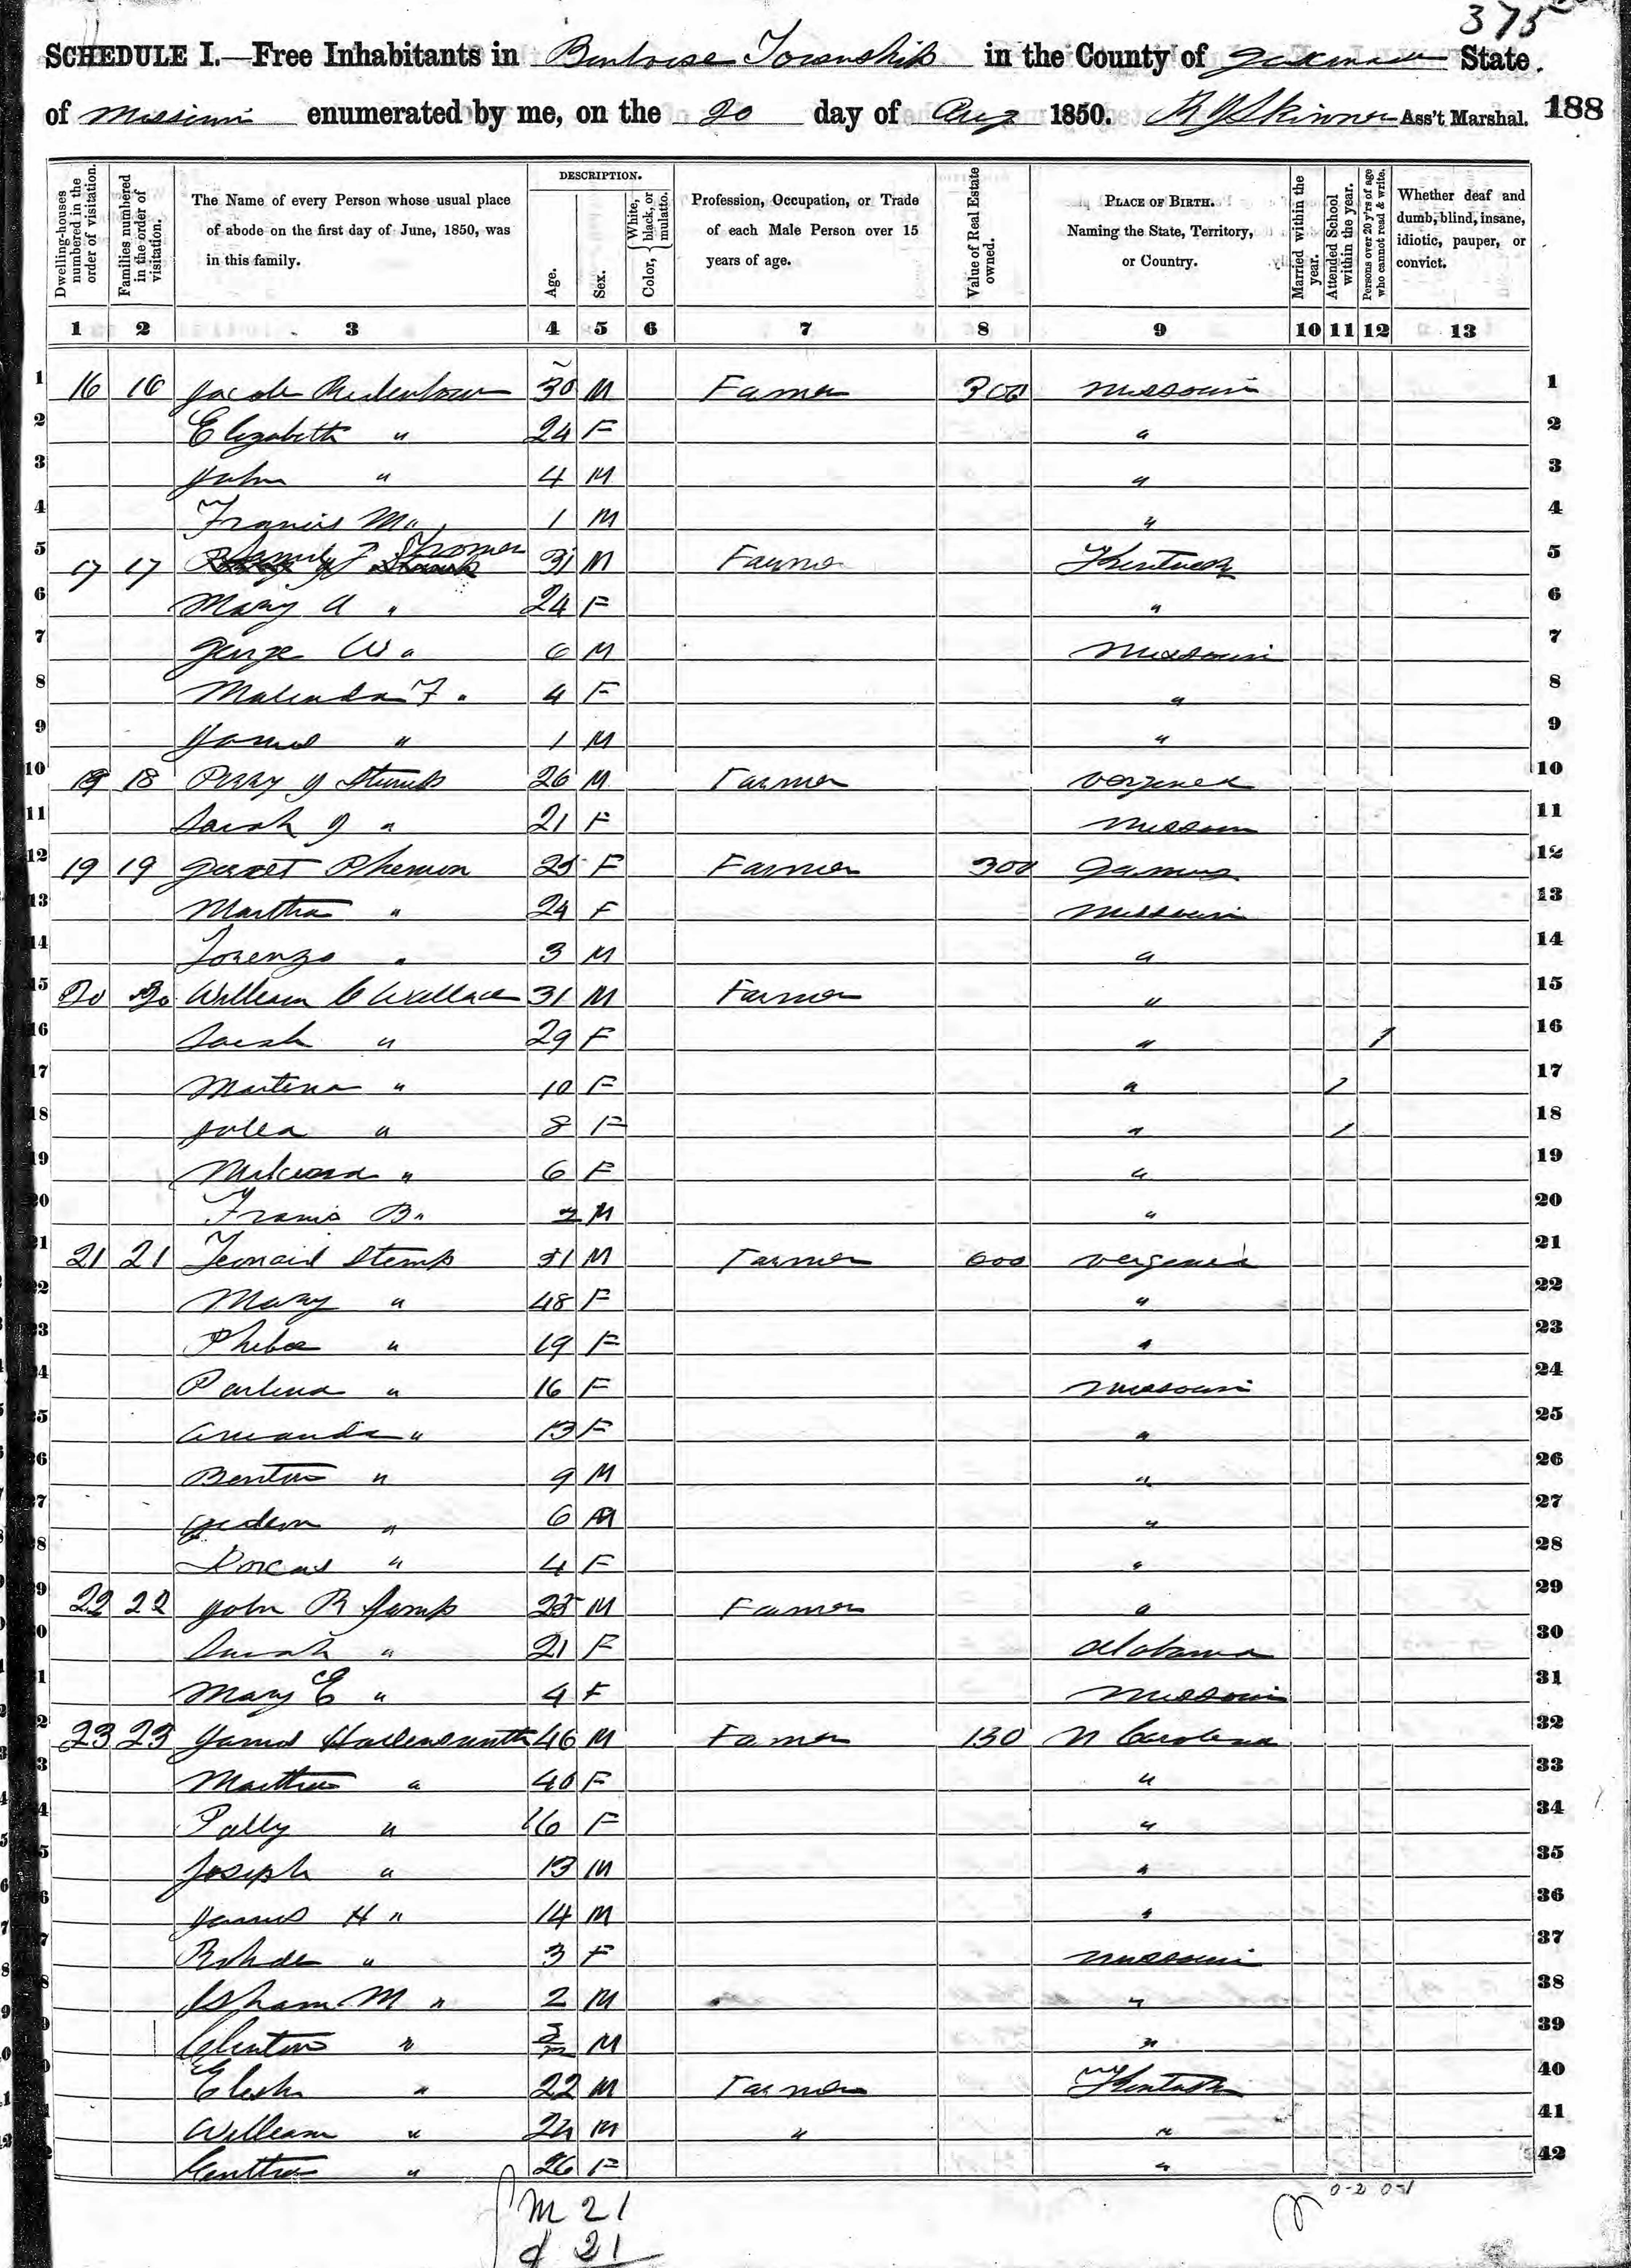 375
SCHEDULE I.—Free Inhabitants in Township in the County of State
of Missouri enumerated by me, on the 20 day of Aug 1850. Skinner Ass't Marshal. 188
Dwelling-houses numbered in the order of visitation.
Families numbered in the order of visitation.
The Name of every Person whose usual place of abode on the first day of June, 1850, was in this family.
DESCRIPTION.
Age.
Sex.
Color, { White, black, or mulatto.
Profession, Occupation, or Trade of each Male Person over 15 years of age.
Value of Real Estate owned.
PLACE OF BIRTH. Naming the State, Territory, or Country.
Married within the year.
Attended School within the year.
Persons over 20 y'rs of age who cannot read & write.
Whether deaf and dumb, blind, insane, idiotic, pauper, or convict.
1 2 3 4 5 6 7 8 9 10 11 12 13
1 16 16 Jacob 30 M Famer 300 Missouri 1
2 Elizabeth " 24 F " 2
3 John " 4 M " 3
4 Francis M " 1 M " 4
5 17 17 31 M Farmer Kentucky 5
6 Mary A " 24 F " 6
7 George W " 6 M Missouri 7
8 Malinda F " 4 F " 8
9 James " 1 M " 9
10 18 18 Perry J Stump 26 M Farmer Vergenea 10
11 Sarah J " 21 F Missouri 11
12 19 19 25 F Farmer 300 12
13 Martha " 24 F Missouri 13
14 Lorenzo " 3 M " 14
15 20 20 William C Wallace 31 M Farmer " 15
16 Sarah " 29 F " 1 16
17 " 10 F " 1 17
18 Julia " 8 F " 1 18
19 " 6 F " 19
20 Francis B " 2 M " 20
21 21 21 Leonard Stump 51 M Farmer 600 Vergenea 21
22 Mary " 48 F " 22
23 Phebe " 19 F " 23
24 Parlena " 16 F Missouri 24
25 Amanda " 13 F " 25
26 Benton " 9 M " 26
27 Gedeon " 6 M " 27
28 Dorcas " 4 F " 28
29 22 22 John R 25 M Famer " 29
30 Sarah " 21 F Alabama 30
31 Mary E " 4 F Missouri 31
32 23 23 James Hallensmith 46 M Famer 130 N Carolena 32
33 Martha " 40 F " 33
34 Polly " 16 F " 34
35 Joseph " 13 M " 35
36 James H " 14 M " 36
37 Rohda " 3 F Missouri 37
38 Isham M " 2 M " 38
39 Clinton " M " 39
40 " 22 M Farmer Kentucky 40
41 William " 24 M " " 41
42 " 26 F " 42
M 21
f 21
0-2 0-1